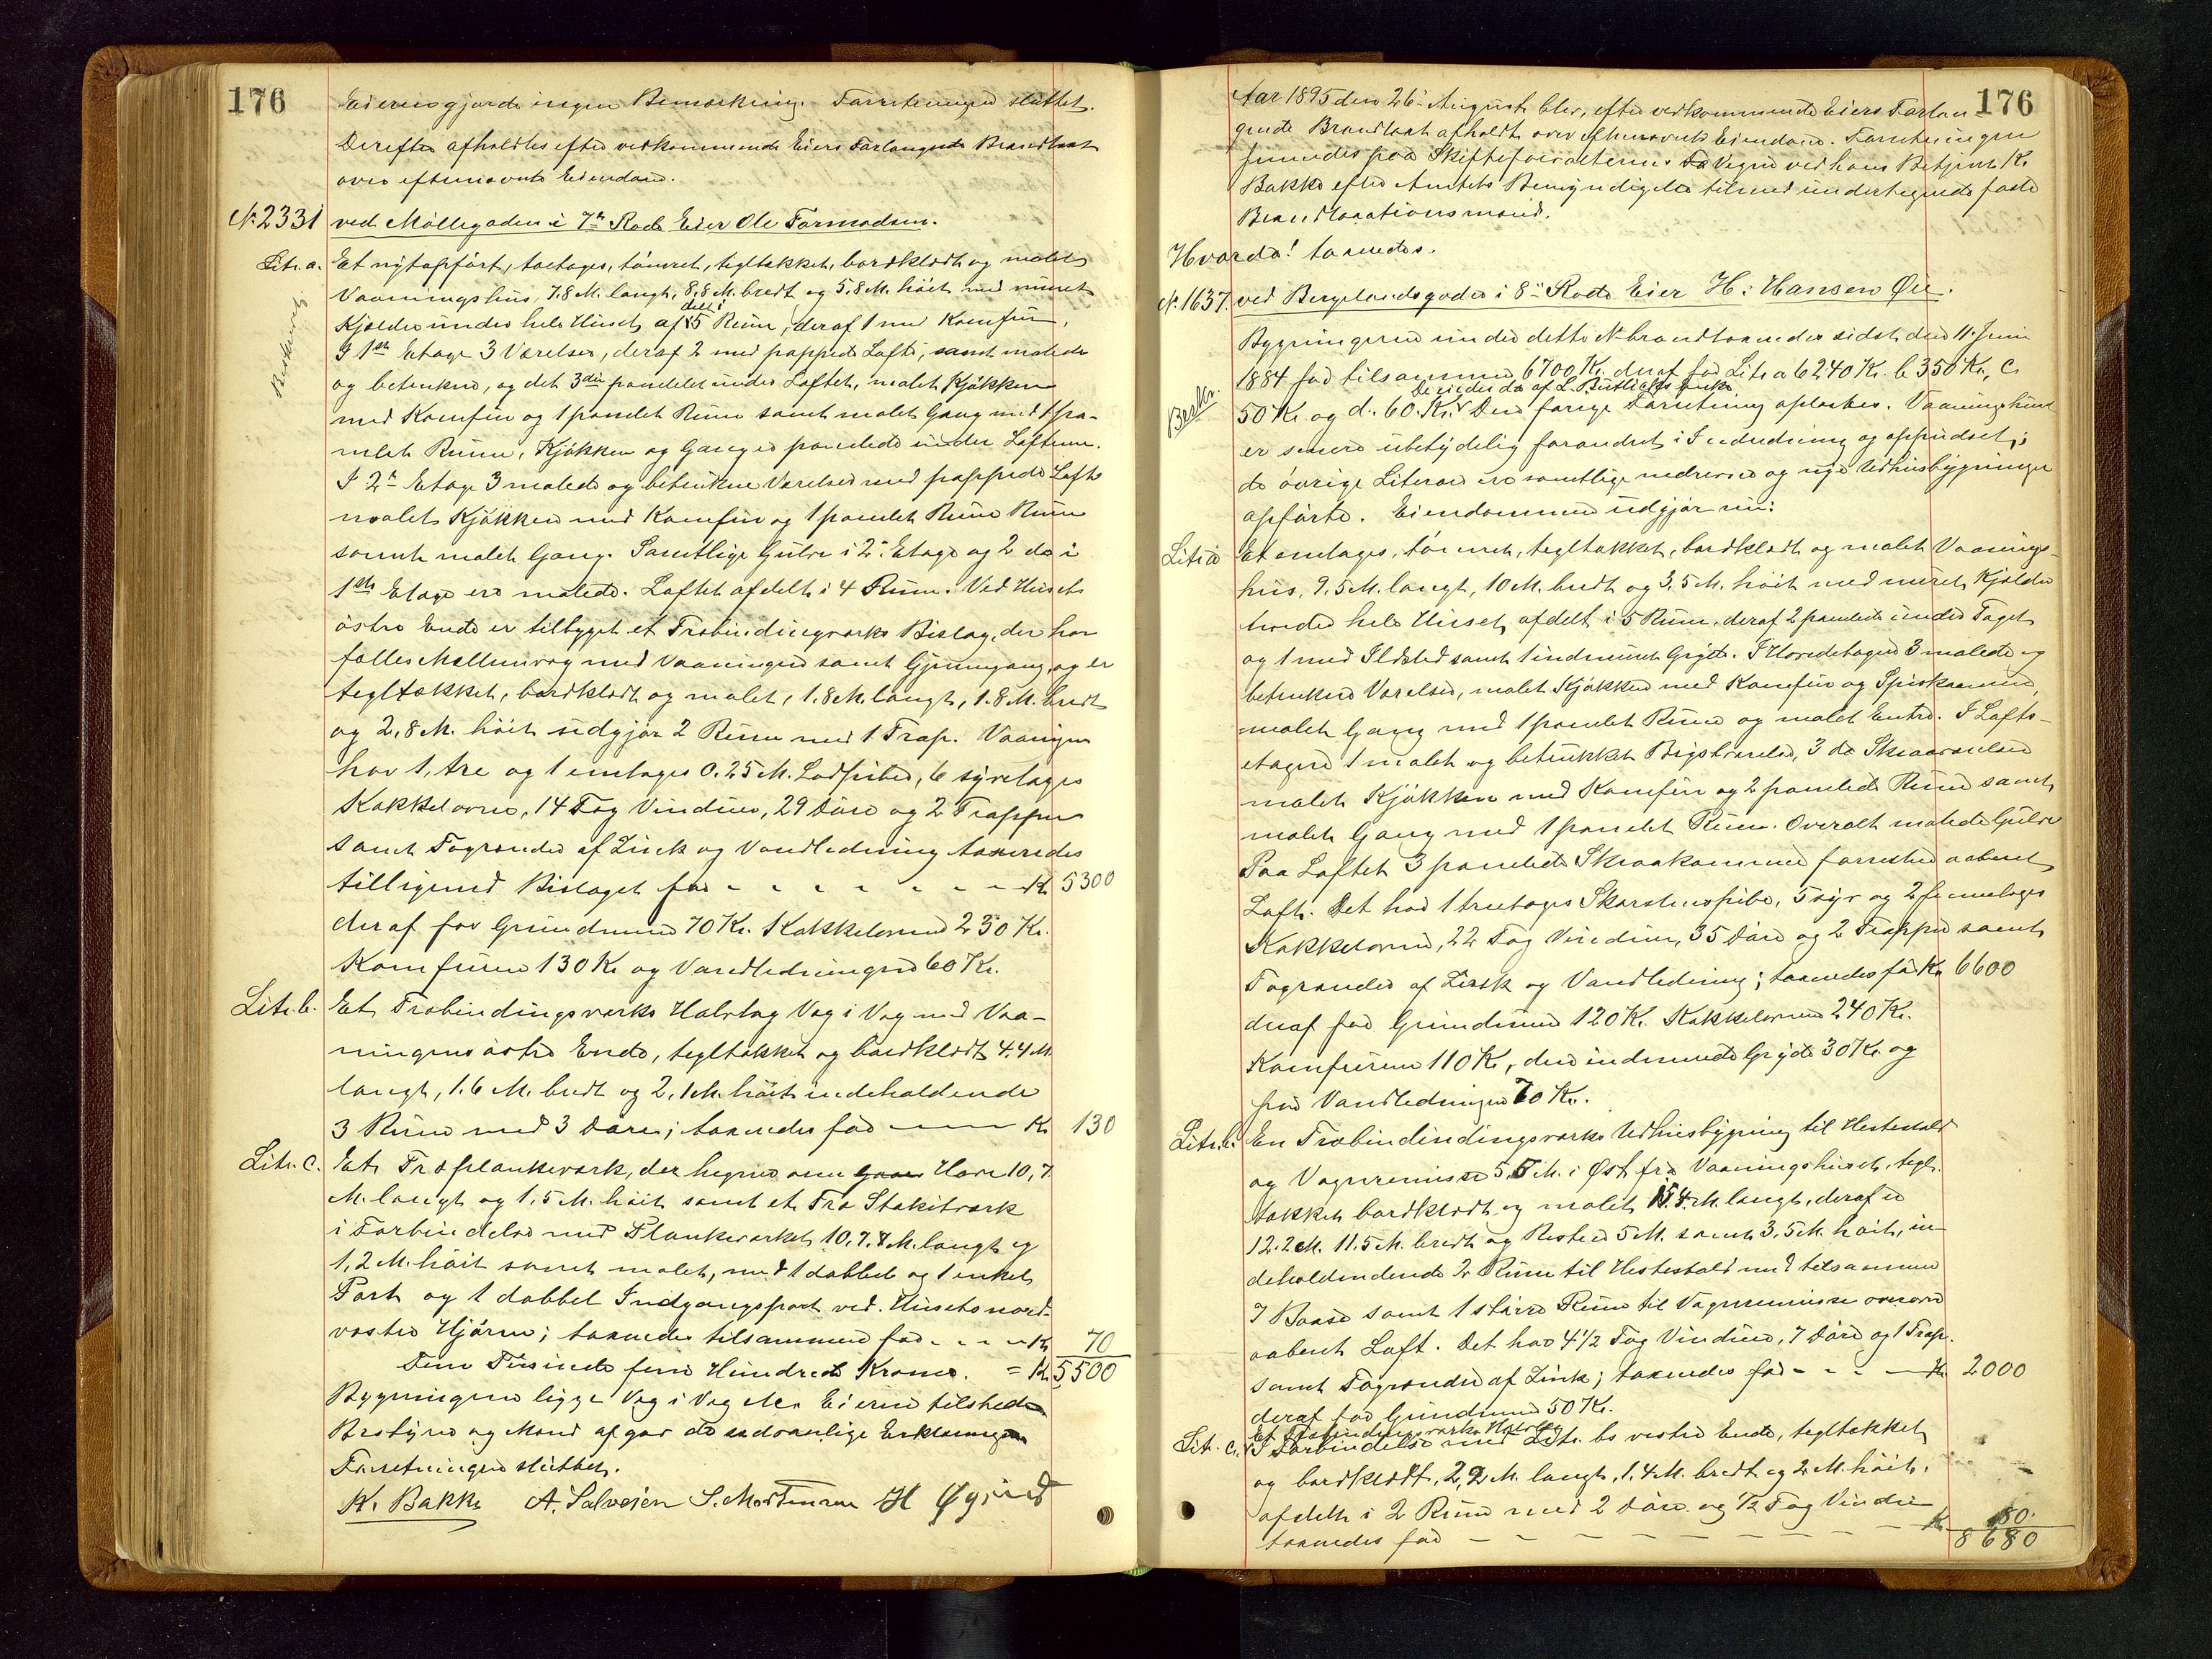 176
Eieren gjorde ingen Bemærkning. Forretningen sluttet.
Derefter afholdtes efter vedkommende Eiers Forlangende Brandtaxt
over efternævnte Eiendom.
N. 2331 ved Møllegaden i 7de Rode Eier Ole Tormodsen.
Litr. a. Et nyt opført, toetages, tømret, tegltækket, bordklædt og malet
Beskrevs.
Vaaningshus, 7.8 M. langt, 8,8 M. bredt og 5.8 M. höit med muret
Kjælder under hele Huset, afdelt i 5 Rum, deraf 1 med Komfur.
I 1ste Etage 3 Værelser, deraf 2 med pappede Lofte, samt malede
og betrukne, og det 3die panelet under Loftet, malet Kjökken
med Komfur og 1 panelet Rum samt malet Gang med 1 pa-
nelet Rum. Kjökken og Gang er panelede under Lofterne.
I 2n Etage 3 malede og betrukne Værelser med pappede Lofte
malet Kjökken med Komfur og 1 panelet Rum Rum
samt malet Gang. Samtlige Gulve i 2: Etage og 2 do i
1ste Etage ere malede. Loftet afdelt i 4 Rum. Ved Husets
östre Ende er tilbygget et Træbindingværks Bislag, der har
fælles Mellemvæg med Vaaningen samt Gjennemgang, og er
tegltækket, bordklædt og malet, 1.8 M. langt, 1.8 M. bredt
og 2,8 M. höit udgjør 2 Rum med 1 Trap. Vaaningen
har 1, tre og 1 enetages 0.25 M. Lodpiber, 6 syvetages
Kakkelovne, 14 Fag Vinduer, 29 Döre og 2 Trapper
samt Tagrender af Zink og Vandledning taxeredes
tilligemed Bislaget for - - - - - - - Kr. 5300
deraf for Grundmuren 70 Kr. Kakkelovnene 230 Kr.
Komfurene 130 Kr. og Vandledningen 60 Kr.
Litr. b. Et Træbindingsværks Halvtag Væg i Væg med Vaa-
ningens östre Ende, tegltækket og bordklædt, 4.4 M.
langt, 1.6 M. bredt og 2,1 M. höit indeholdende
3 Rum med 3 Döre; taxeredes for — Kr 130
Litr. C. Et Træplankeværk, der hegner om Gaard Have 10,7
M. langt og 1.5 M. höit samt et Træ Stakitværk
i Forbindelse med Plankeværket 10.7.7 M. langt og
1,2 M. höit samt malet, med 1 dobbel og 1 enkel
Port og 1 dobbel Indgangsport ved Husets nord-
vestre Hjörne; taxeredes tilsammen for - - - Kr 70
Fem Tusinde fem Hundrede Kroner. = Kr. 5500
Bygningerne ligge Væg i Væg Mr. Eieren tilstede
Bestyrer og Mænd afgav de sædvanlige Erklæringer
Forretningen sluttet.
K. Bakke A. Salvesen S. Mortensen H Øgrud
176
Aar 1895 den 26: August blev, efter vedkommende Eiers Forlan-
gende Brandtaxt afholdt over efternævnte Eiendom. Forretningen
fremedes paa Skifteforvalterens Vegne ved hans Betjent K.
Bakke efter Amtets Bemyndigelse tilmed undertegnede faste
Brandtaxationsmænd.
Hvorda! taxeredes.
N. 1637. ved Bergelandsgaden i 8: Rode Eier H: Hansen Øie.
Bygningerne under dette N. brandtaxeredes sidst den 11. Juni
1884 for tilsammen 6700 Kr. deraf for Litr. a 6240 Kr. b 350 Kr., c
Beskr.
50 Kr. og d. 60. Kr. Den forige Forretning oplæstes. Vaaningshuset
er senere ubetydelig forandret i Indredning og oppudset;
de øvrige Litraer ere samtlige nedrevne og nye Udhusbygninger
opførte. Eiendommen udgjør nu:
Litr. a Et enetages, tömret, tegltækket, bordklædt og malet Vaanings-
hus, 9.5 M. langt, 10 M. bredt og 3,5 M. höit med muret Kjælder
under hele Huset, afdelt i 5 Rum, deraf 2 panelede under Taget
og 1 med Ildsted samt 1 indmuret Gryde. I Hovedetagen 3 malede og
betrukne Værelser, malet Kjökken med Komfur og Spiskammer,
malet Gang med 1 panelet Rum og malet Entre. I Lofts-
etagen 1 malet og betrukket Kvistværelse, 3 do Skraaværelser
malet Kjökken med Komfur og 2 panelede Rum samt
malet Gang med 1 panelet Rum. Overalt malede Gulve
Paa Loftet 3 panelede Skraakammer forresten aabent
Loft. Det har 1 treetages Skorstenspibe, 5 syv og 2 femetages
Kakkelovne, 22 Fag Vinduer, 35 Döre og 2 Trapper samt
Tagrender af Zink og Vandledning; taxeredes for Kr. 6600
deraf for Grundmuren 120 Kr. Kakkelovnene 240 Kr.
Komfurene 110 Kr, den indmurede Gryde 30 Kr. og
for Vandledningen 70 Kr.
Litr. b. En Træbindindingsværks Udhusbygning til Hestestald
og Vognremisse 5.5 M. i Øst fra Vaaningshuset, tegl-
tækket bordklædt og malet, 15.4 M. langt, deraf er
12.2 M. 11.5 M. bredt og Resten 5 M. samt 3.5 M. höit, in-
deholdendende 2 Rum til Hestestald med tilsammen
7 Baase samt 1 större Rum til Vognremisse ovenover
aabent Loft. Det har 4 1/2 Fag Vinduer, 7 Döre og 1 Trap.
samt Tagrender af Zink; taxeredes for - - - Kr. 2000
deraf for Grundmuren 50 Kr.
Et Træbindingsværks Halvtag
Litr. c. I Forbindelse med Litr. bs vestre Ende, tegltækket
og bordklædt, 2,2 M. langt, 1.4 M. bredt og 2 M. höit,
afdelt i 2 Rum med 2 Döre og 1/2 Fag Vindue
taxeredes for — — — Kr 80.
8680